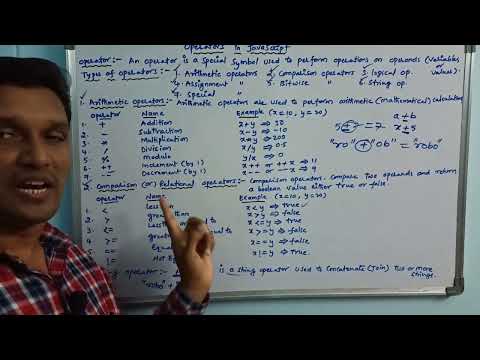 Operators in JavaScript
Operator:- An operator is a special symbol used to perform operations on operands (variables or values).
Types of operators:- 1. Arithmetic operators 2. Comparison operators 3. logical op.
4. Assignment " 5. Bitwise " 6. String op.
7. Special "
1. Arithmetic operators:- Arithmetic operators are used to perform arithmetic (mathematical) calculations
Operator Name Example (x=10, y=20)
1. + Addition x+y ⇒ 30
2. - Subtraction x-y ⇒ -10
3. * Multiplication x*y ⇒ 200
4. / Division x/y ⇒ 0.5
5. % modulo y%x ⇒ 0
6. ++ Increment (by 1) x++ or ++x ⇒ 11
7. -- Decrement (by 1) x-- or --x ⇒ 9
a + b
x + 5
5 + 2 = 7
"ro" + "bo" = "robo"
2. Comparison (or) Relational operators:- Comparison operators compare two operands and return
a boolean value either true or false.
Operator Name Example (x=10, y=20)
1. < Less than x<y ⇒ true
2. > greater than x>y ⇒ false
3. <= Less to x<=y ⇒ true
4. >= great equal to x>=y ⇒ false
5. == x==y ⇒ false
6. != Not Eq x!=y ⇒ true.
is a string operator used to concatenate (join) two or more
strings.
"robo" +